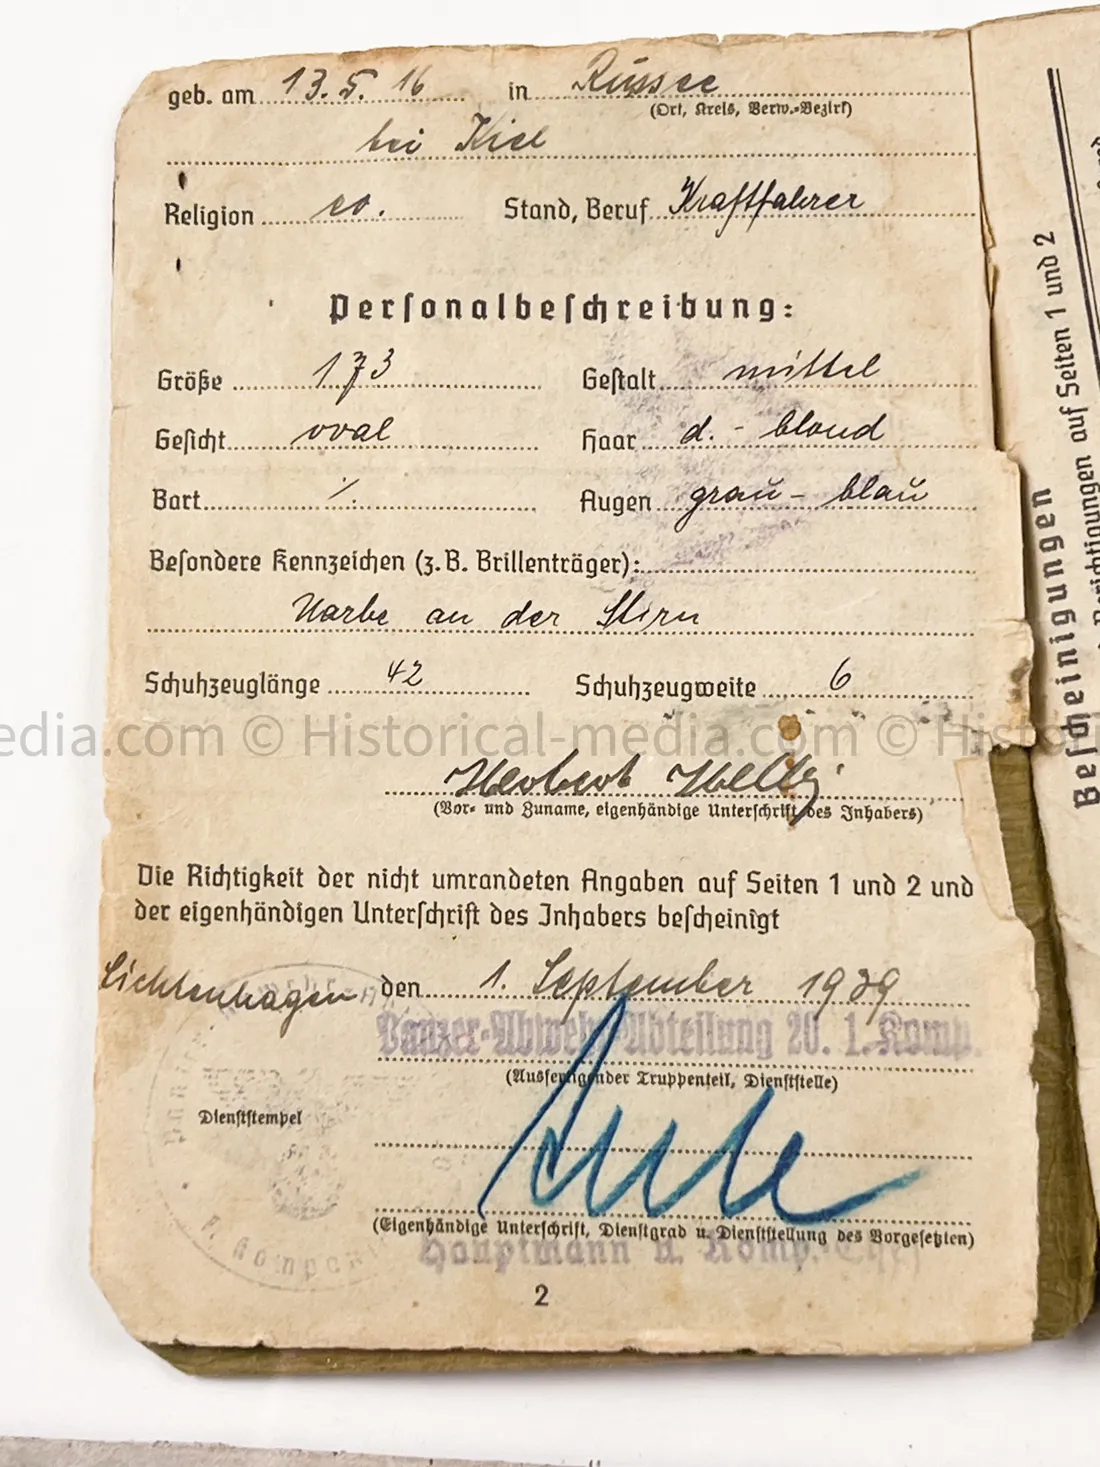 geb. am 13.5.16 in Russee
(Ort, Kreis, Verw.-Bezirk)
bei Kiel
Religion ev. Stand, Beruf Kraftfahrer
Personalbeschreibung:
Größe 173 Gestalt mittel
Gesicht oval Haar d.-blond
Bart ./. Augen grau-blau
Besondere Kennzeichen (z.B. Brillenträger):
Narbe an der Stirn
Schuhzeuglänge 42 Schuhzeugweite 6
edia.com © Historical-media.com © Historic
Herbert
(Vor- und Zuname, eigenhändige Unterschrift des Inhabers)
Die Richtigkeit der nicht umrandeten Angaben auf Seiten 1 und 2 und
der eigenhändigen Unterschrift des Inhabers bescheinigt
Lichtenhagen den 1. September 1939
Panzer-Abwehr-Abteilung 20. 1. Komp.
(Ausfertigender Truppenteil, Dienststelle)
Dienststempel
(Eigenhändige Unterschrift, Dienstgrad u. Dienststellung des Vorgesetzten)
Hauptmann u. Komp.-Chef
2
Bescheinigungen
Berichtigungen auf Seiten 1 und 2